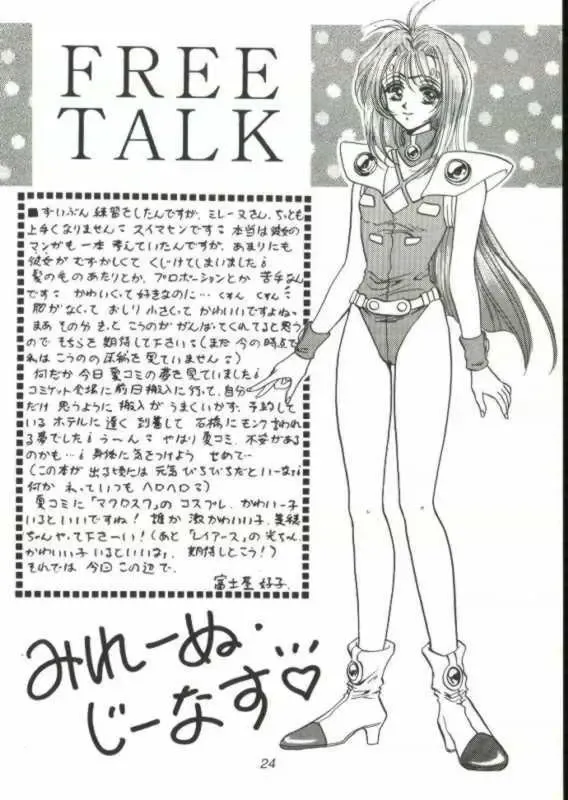 FREE
TALK
■ずいぶん練習をしたんですが、ミレーヌさん、ちっとも
上手くなりません。スイマセンです。本当は彼女の
マンガも一本考えていたんですが、あまりにも
彼女がむずかしくてくじけてしまいました。
髪の毛のあたりとか、プロポーションとか苦手なん
です。かわいくって好きなのに…くすんくすん。
胸がなくておしり小さくってかわいいですよね。
まあその分きっとこうのががんばってくれてると思う
のでそちらを期待して下さい。(まだ今の時点で
私はこうのの原稿を見ていません。)
何だか今日夏コミの夢を見ていました。
コミケット会場に前日搬入に行って、自分
だけ思うように搬入がうまくいかず、予約して
いるホテルに遅く到着して石橋にモンク言われ
る夢でした。う〜ん。やはり夏コミ、不安がある
のかも…。身体に気をつけようせめて…
(この本が出る頃には元気ぴちぴちだといーな。
何かれっていつもヘロヘロ。)
夏コミに「マクロス7」のコスプレ、かわいー子
いるといいですね!誰か激かわいい子、美穂
ちゃんやって下さーい!(あと「レイアース」の光ちゃん
かわいい子いるといいな。期待しとこう!)
それでは今回この辺で。
富士星 好子.
みれーぬ・
じーなす♡
24